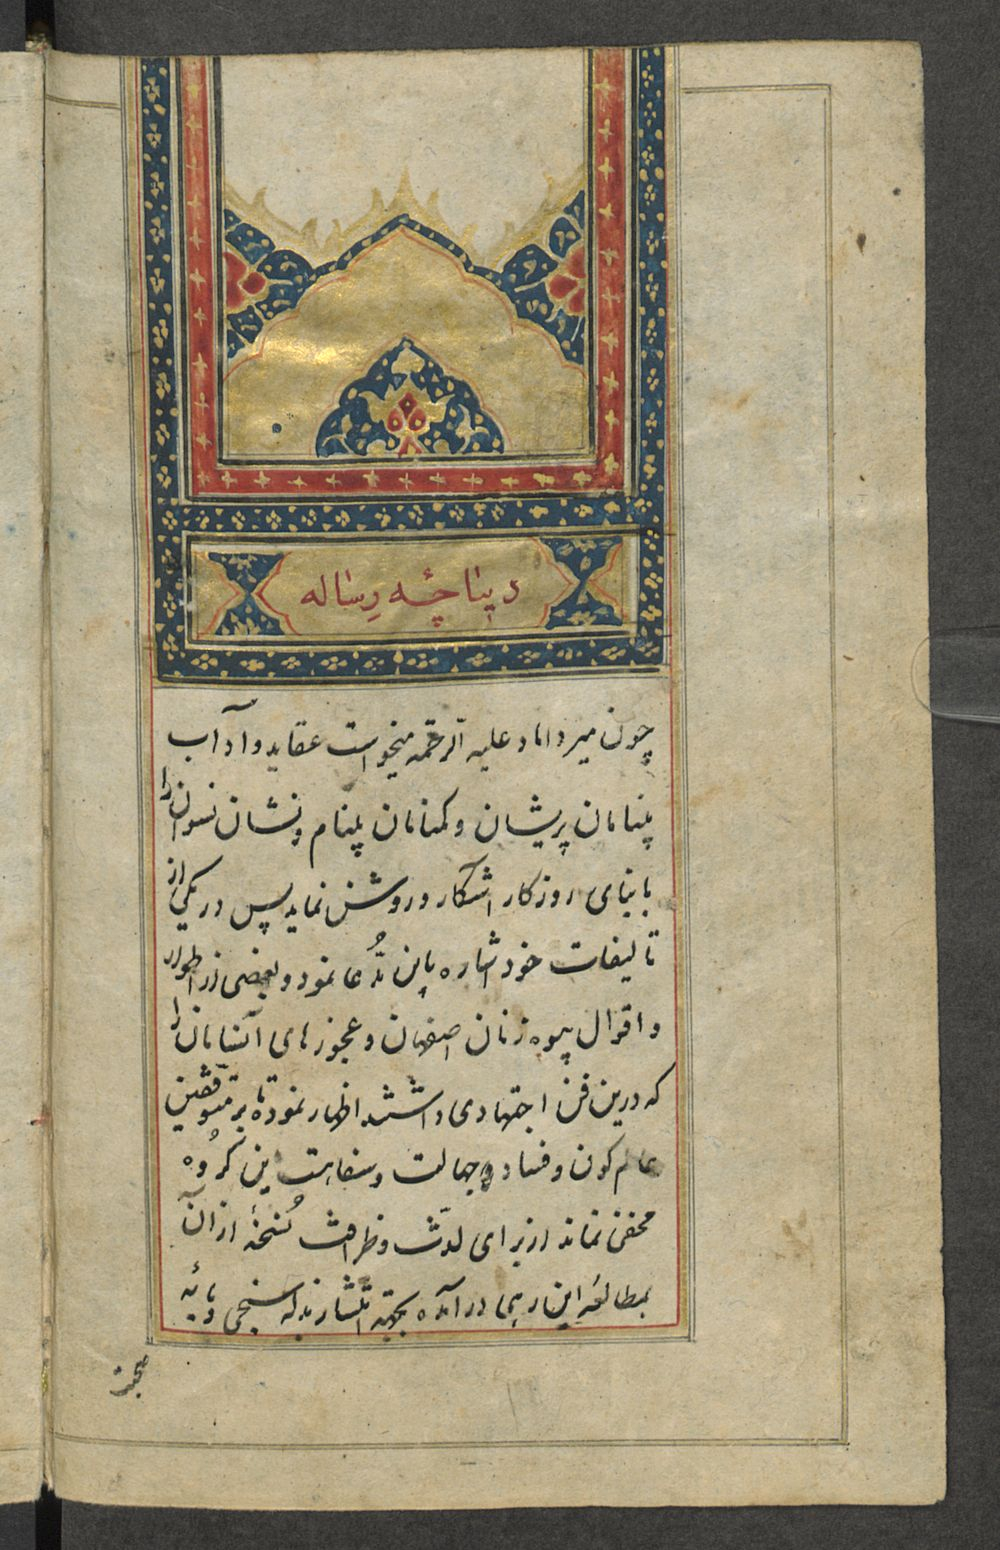 دیباچهٔ رساله
چون میر داماد علیه الرحمه میخواست عقاید و آداب
پنامان پریشان و کمنامان پلنام و نشان نسوان را
بابنای روزکار اشکار و روشن نماید پس در یکی از
تالیفات خود اشاره باین مدعا نمود و بعضی از اطوار
و اقوال بیوه زنان اصفهان و عجوزهای آنسامان را
که درین فن اجتهادی داشتند اظهار نموده تا بر متوقفین
عالم کون و فساد جهالت و سفاهت این کروه
مخفی نماند از برای لذت و ظرافت نسخهٔ از آن
بمطالعه این رهی در آمده بجهة انتشار بذله سنجی و مایهٔ